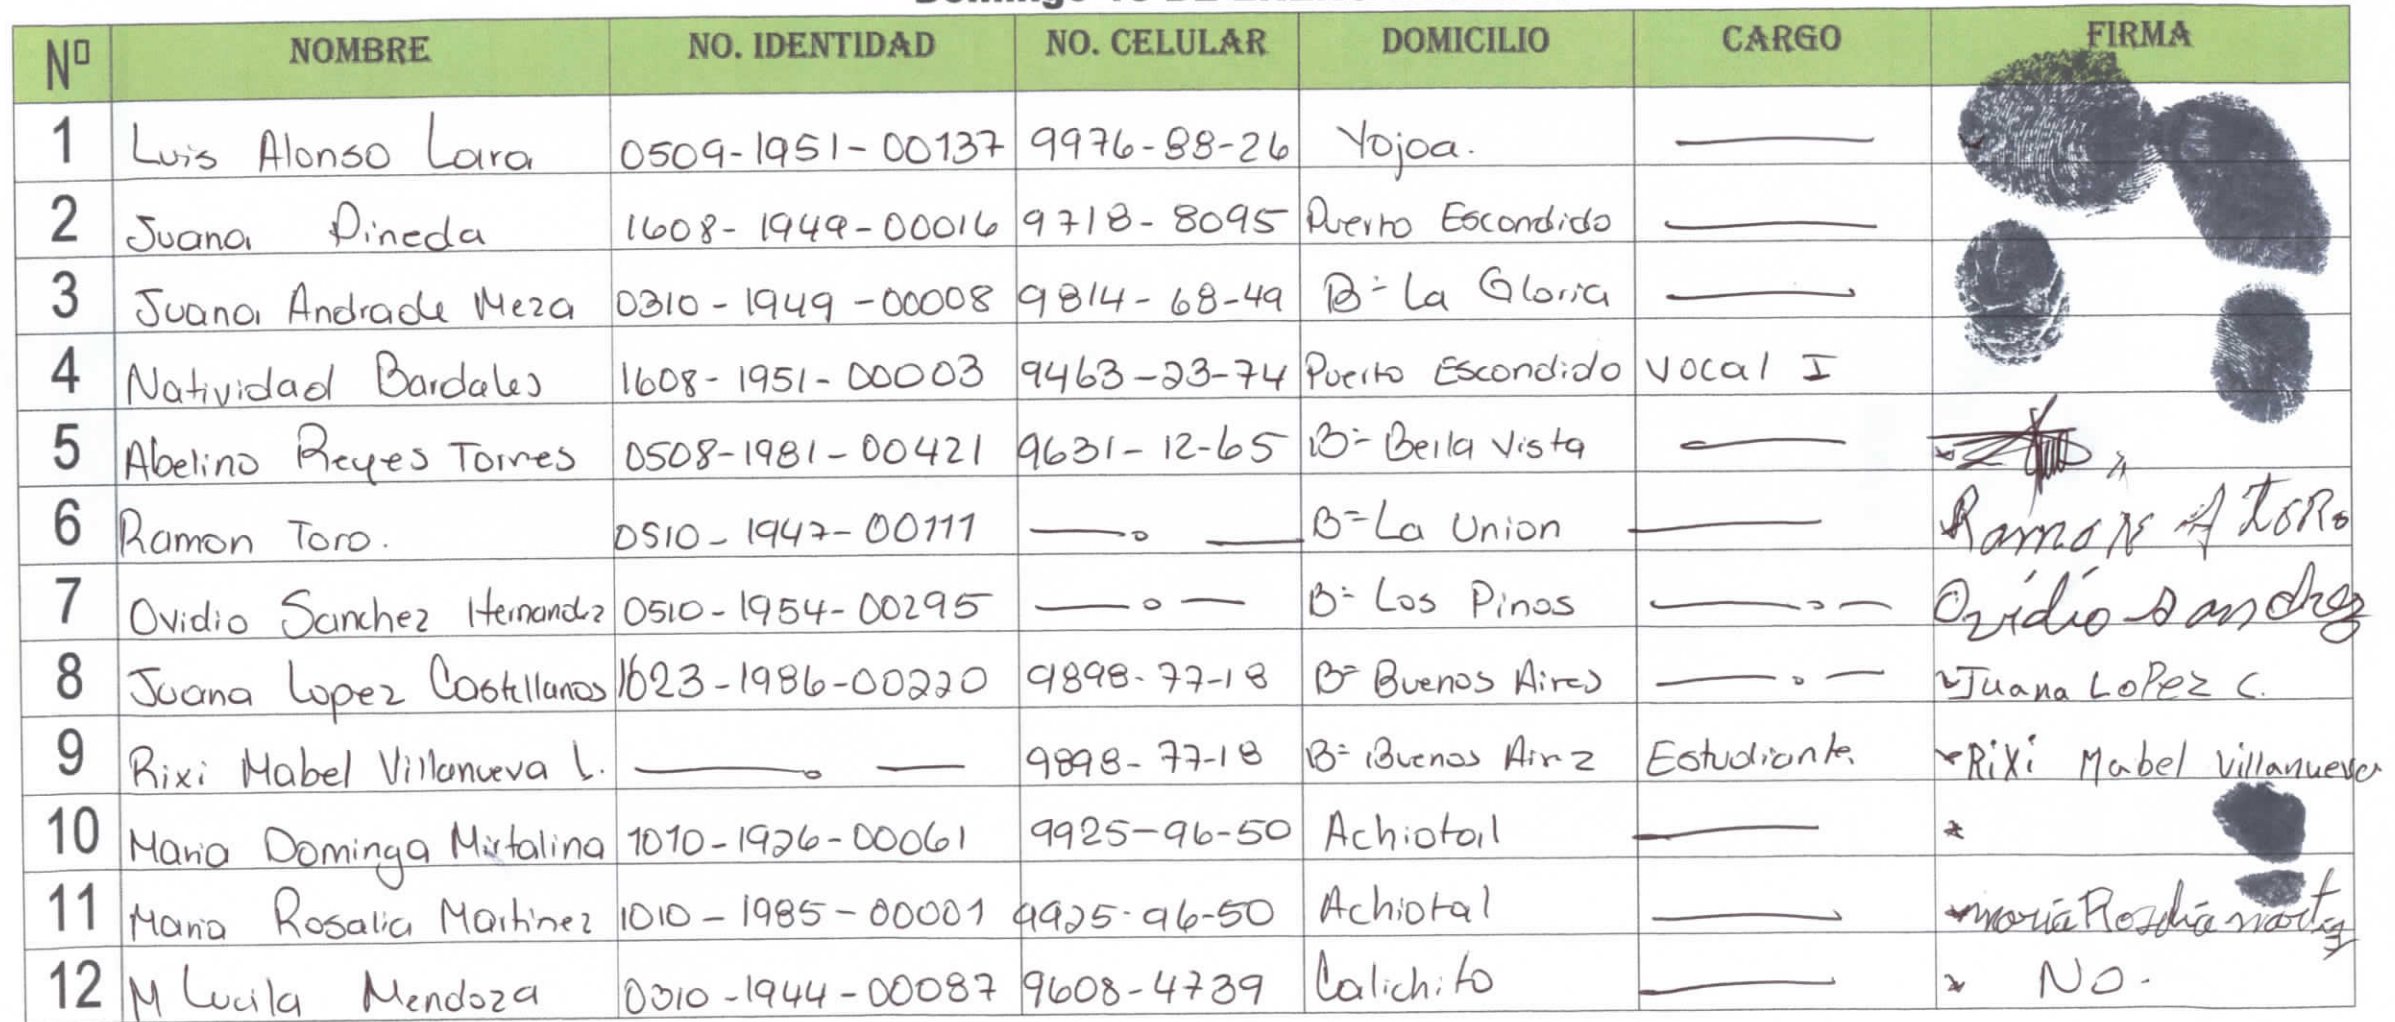 Nº NOMBRE NO. IDENTIDAD NO. CELULAR DOMICILIO CARGO FIRMA
1 Luis Alonso Lara 0509-1951-00137 9976-88-26 Yojoa.
2 Juana Pineda 1608-1949-00016 9718-8095 Puerto Escondido
3 Juana Andrade Meza 0310-1949-00008 9814-68-49 B= La Gloria
4 Natividad Bardales 1608-1951-00003 9463-23-74 Puerto Escondido Vocal I
5 Abelino Reyes Torres 0508-1981-00421 9631-12-65 B= Bella Vista
6 Ramon Toro. 0510-1947-00111 B= La Union Ramon A Toro
7 Ovidio Sanchez Hernandz 0510-1954-00295 B= Los Pinos Ovidio Sanchez
8 Juana Lopez Castellanos 1623-1986-00220 9898-77-18 B= Buenos Aires Juana LoPez C.
9 Rixi Mabel Villanueva L. 9898-77-18 B= Buenos Airz Estudiante. RiXi Mabel Villanueva
10 Maria Dominga Mirtalina 1010-1926-00061 9925-96-50 Achiotal
11 Maria Rosalia Martinez 1010-1985-00001 9925-96-50 Achiotal maria Rosalia
12 M Lucila Mendoza 0310-1944-00087 9608-4739 Calichito No.